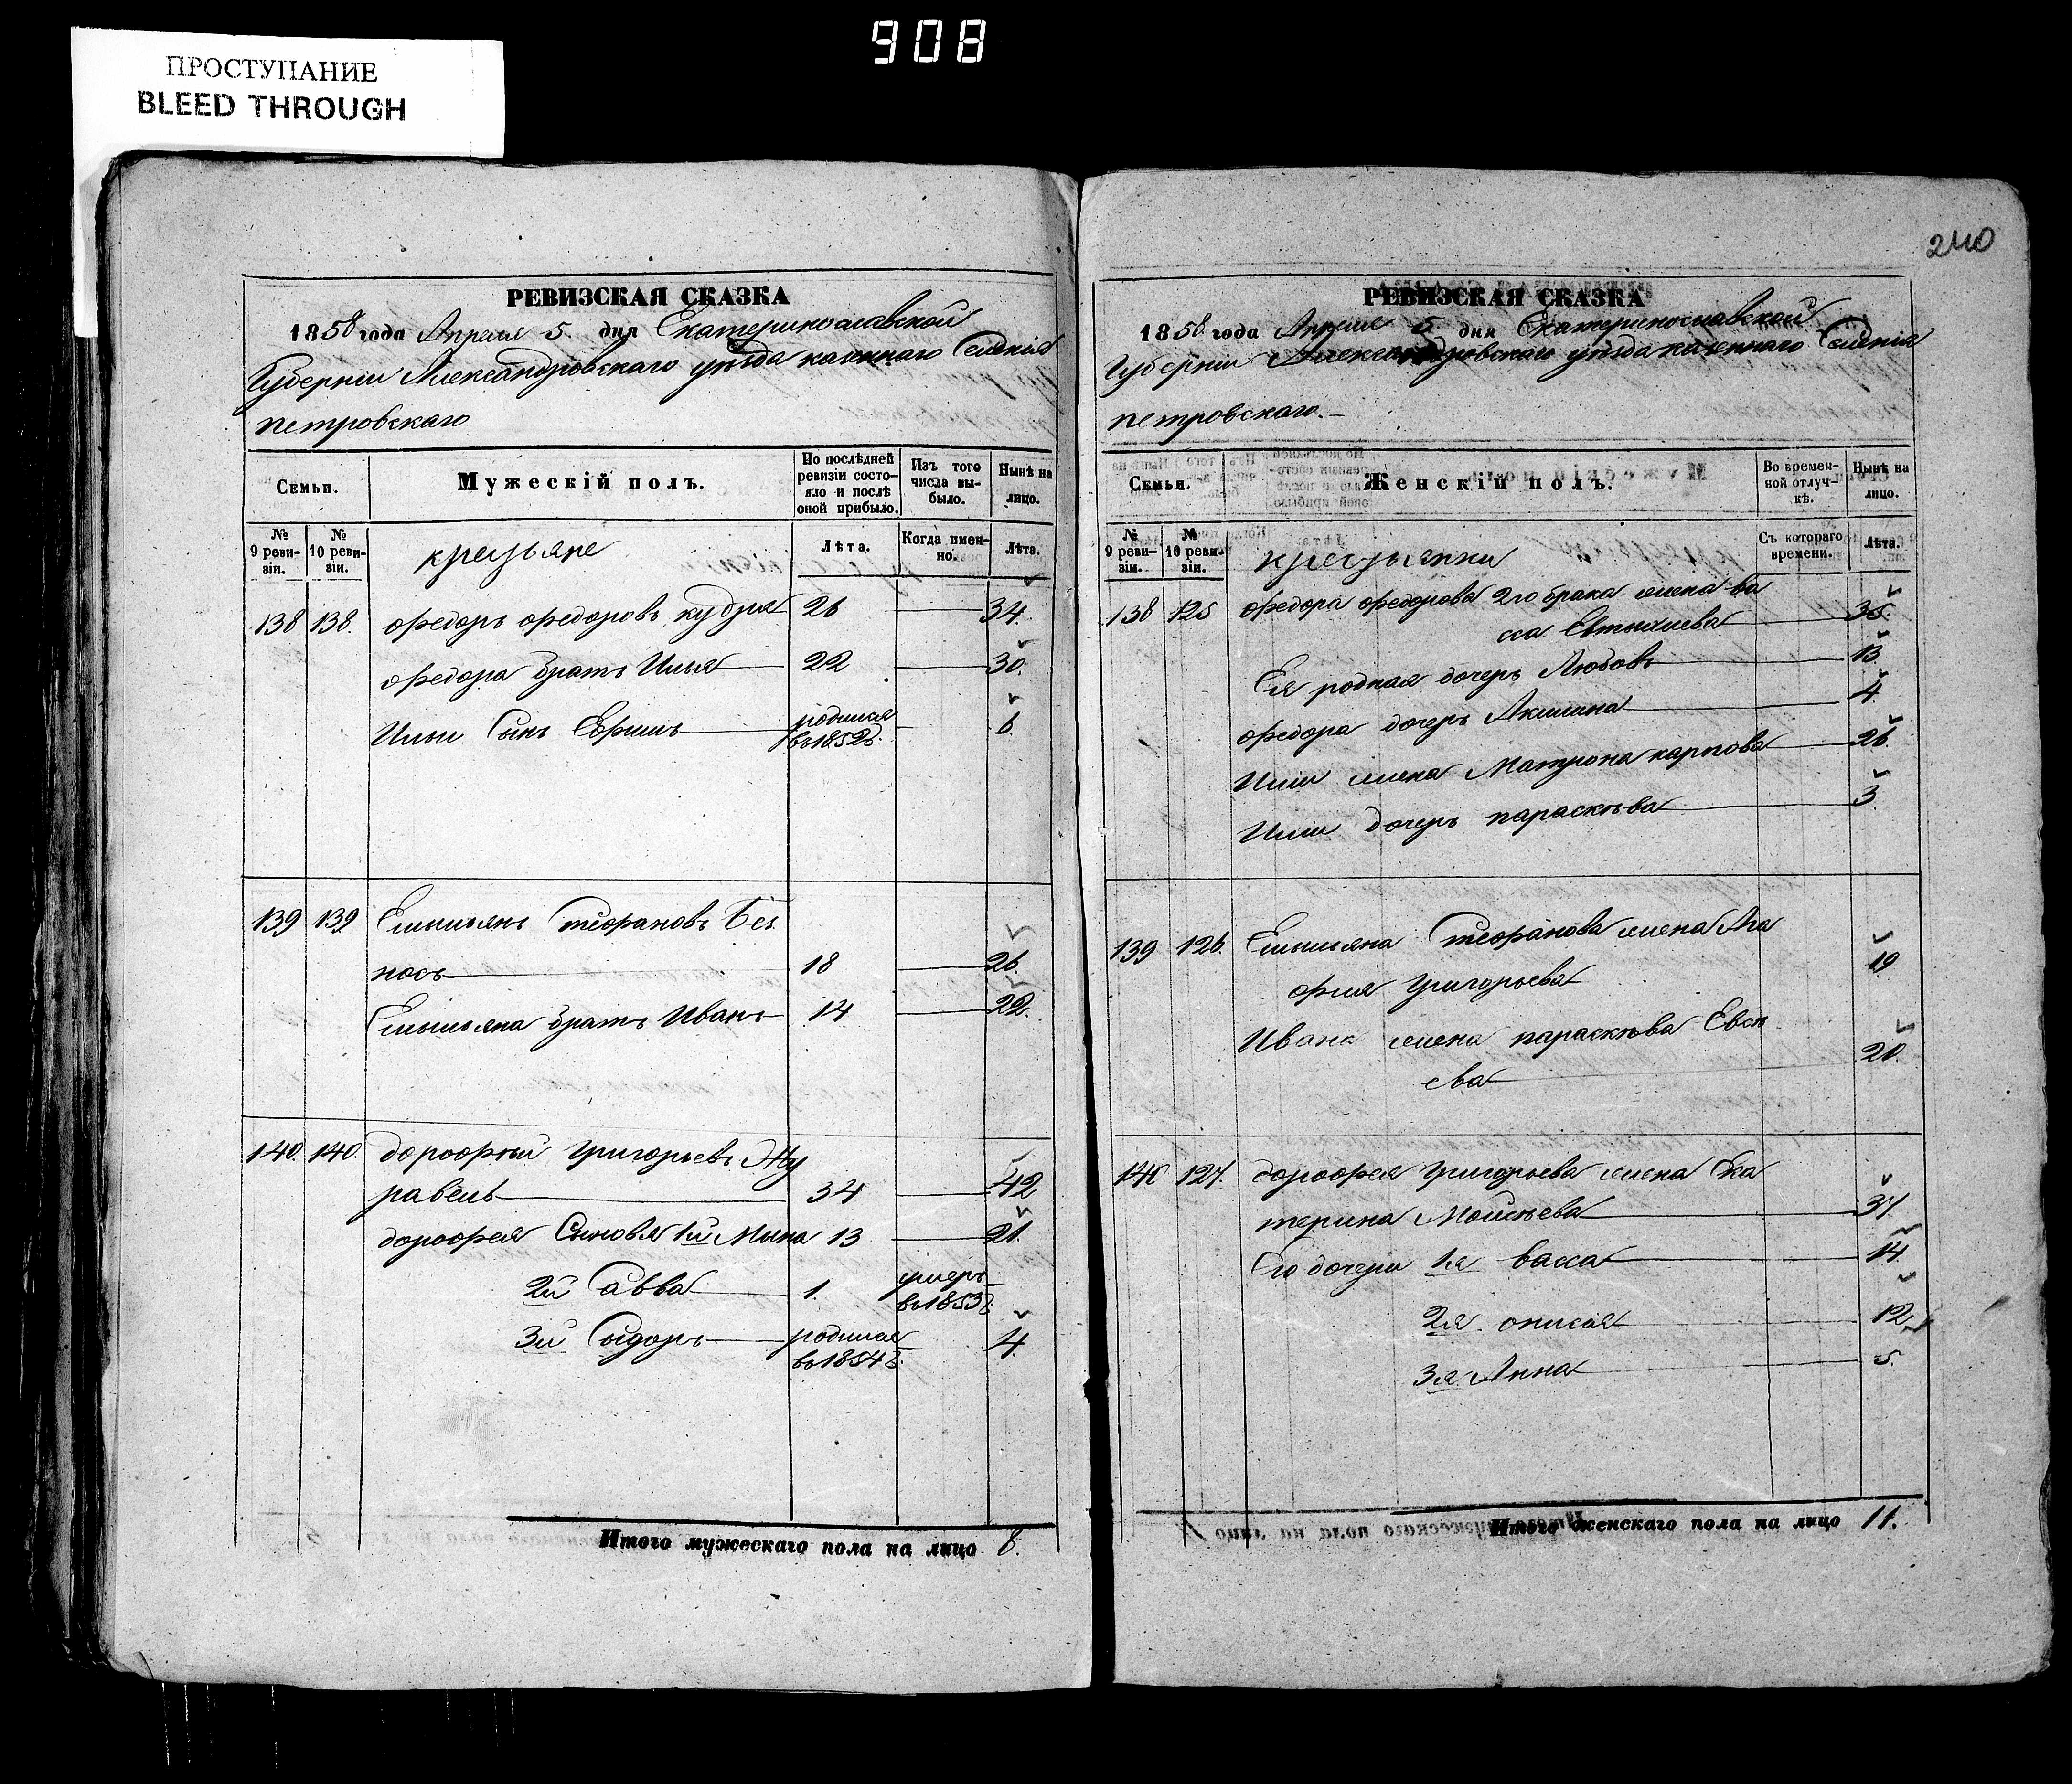 908
ПРОСТУПАНИЕ
BLEED THROUGH
240
РЕВИЗСКАЯ СКАЗКА
1858 года Апреля 5 дня Екатеринославской
Губерніи Александровскаго уѣзда казеннаго Селенія
петровскаго
Семьи.
Мужескій полъ.
По послѣдней ревизіи состояло и послѣ оной прибыло.
Изъ того числа выбыло.
Нынѣ на лицо.
№ 9 ревизіи.
№ 10 ревизіи.
крестьяне
Лѣта.
Когда именно.
Лѣта.
138 138. Федоръ Федоровъ кудря 26 34.
Федора братъ Илья 22 30.
Ильи Сынъ Ефимъ родился въ 1852г. 6.
139 139 Емельянъ Теофановъ Без
носъ 18 26.
Емельяна братъ Иванъ 14 22.
140. 140. дорофей Григорьевъ Жу
равель 34 42
дорофея Сыновя 1й Мина 13 21.
2й Савва 1. умеръ въ 1853г.
3й Сидоръ родился въ 1854г. 4.
Итого мужескаго пола на лицо 8.
РЕВИЗСКАЯ СКАЗКА
1858 года Апреля 5 дня Екатеринославской
Губерніи Александровскаго уѣзда казеннаго Селенія
петровскаго.
Семьи.
Женскій полъ.
Во временной отлучкѣ.
Нынѣ на лицо.
№ 9 ревизіи.
№ 10 ревизіи.
крестьянки
Съ котораго времени.
Лѣта.
138 125 Федора Федорова 2го брака жена Ва
сса Евтихиева 35.
Ея родная дочерь Любовь 13
Федора дочерь Акилина 4.
Ильи жена Матрона карпова 26.
Ильи дочерь параскѣва 3
139 126. Емельяна Теофанова жена Ага
фия Григорьева 19
Ивана жена параскѣва Евсѣ
ева 20.
140 127. дорофея Григорьева жена Ека
терина Моисѣева 37.
Его дочери 1я васса 14.
2я. онисия 12
3я. Анна 5.
Итого женскаго пола на лицо 11.